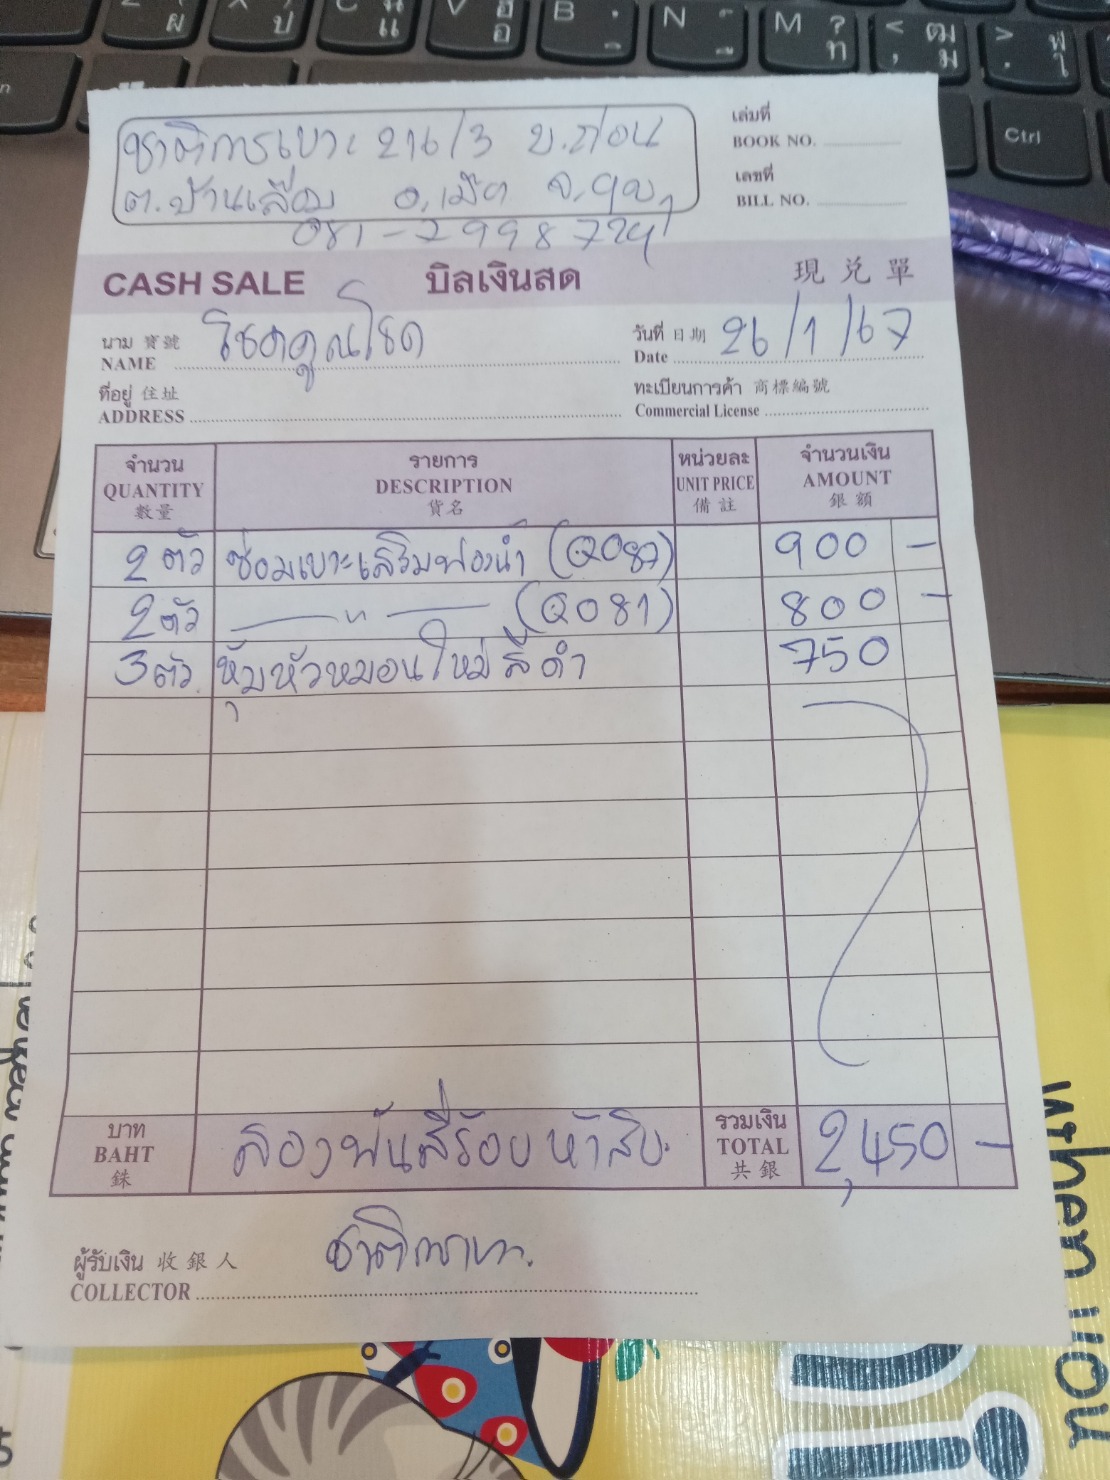 ชาติการเบาะ 216/3 บ.ก่อน
ต.บ้านเลื่อม อ.เมือง จ.อุดร
081-2998724
เล่มที่
BOOK NO.
เลขที่
BILL NO.
CASH SALE บิลเงินสด 現兑單
นาม 寶號 NAME โชคคูณโชค
วันที่ 日期 Date 26/1/67
ที่อยู่ 住址
ADDRESS
ทะเบียนการค้า 商標編號
Commercial License
จำนวน รายการ หน่วยละ จำนวนเงิน
QUANTITY DESCRIPTION UNIT PRICE AMOUNT
數量 貨名 備註 銀額
2 ตัว ซ่อมเบาะเสริมฟองน้ำ (Q087) 900 -
2 ตัว —〃— (Q081) 800 -
3 ตัว หุ้มหัวหมอนใหม่สีดำ 750
บาท
BAHT
銖
สองพันสี่ร้อยห้าสิบ
รวมเงิน
TOTAL
共銀
2,450 -
ผู้รับเงิน 收銀人
COLLECTOR
ชาติการเบาะ
when you
Ctrl